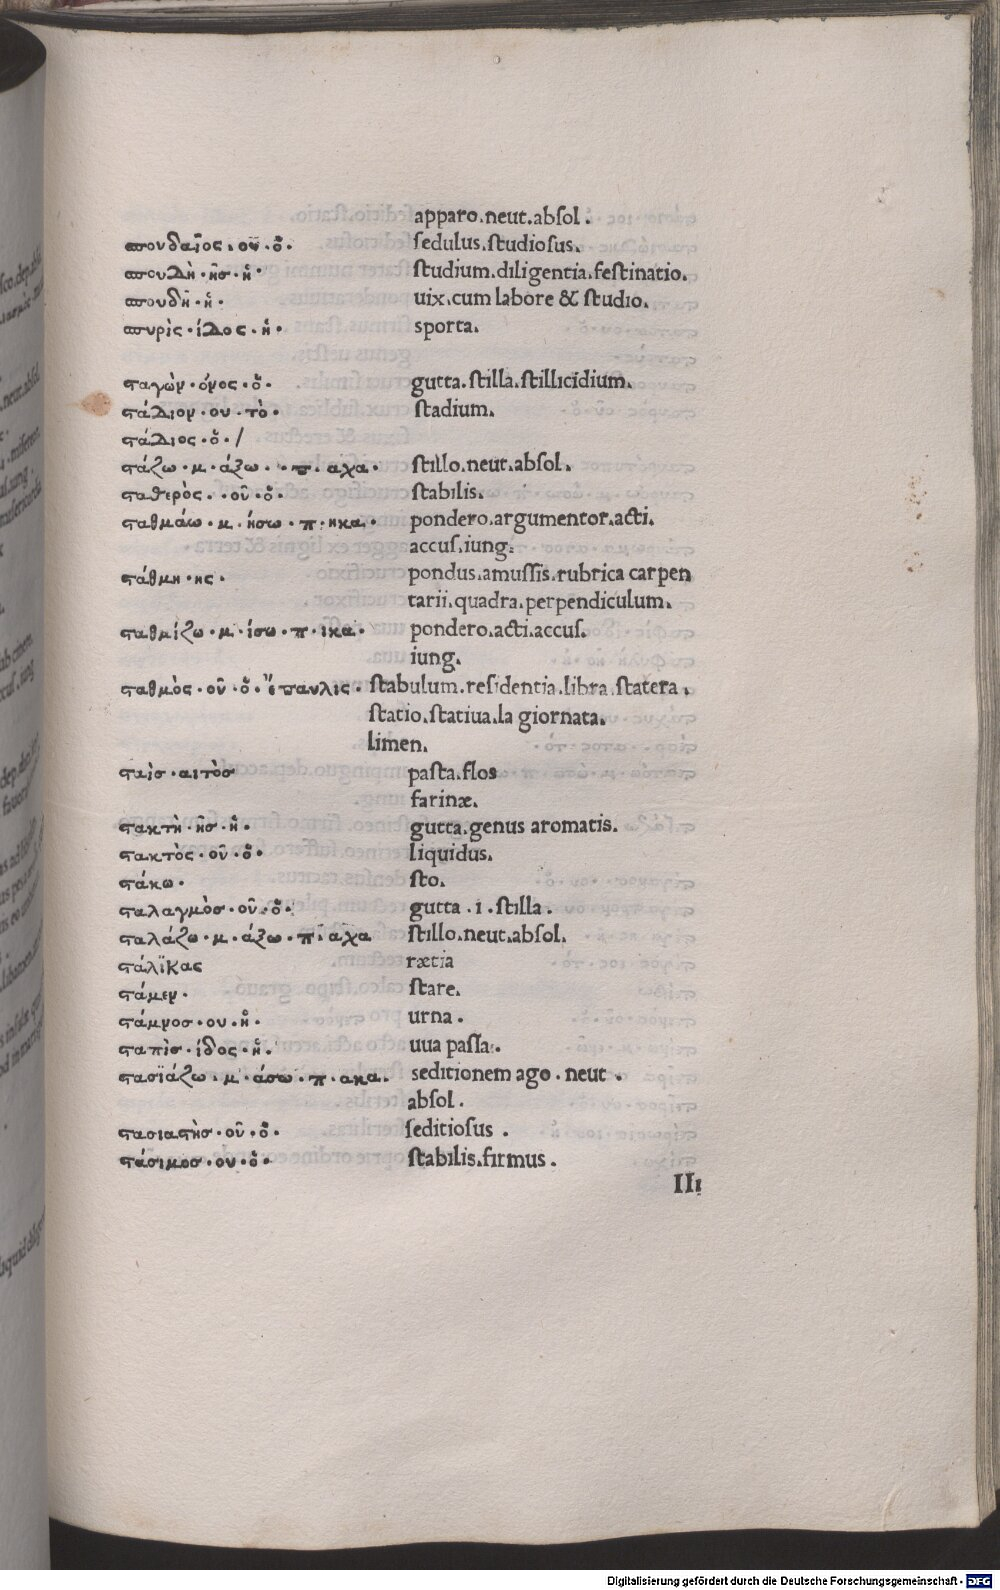 apparo.neut.absol.
σπουδαῖος.ου.ὁ. sedulus.studiosus.
σπουδὴ.ῆσ.ἡ. studium.diligentia.festinatio.
σπουδῆ.ἡ. uix.cum labore & studio.
σπυρὶς.ίδος.ἡ. sporta.
σταγὼν.όνος.ὁ. gutta.stilla.stillicidium.
στάδιον.ου.τὸ. stadium.
στάδιος.ὁ./
στάζω.μ.άξω..π.αχα. stillo.neut.absol.
σταθερὸς.οῦ.ὁ. stabilis.
σταθμάω.μ.ήσω.π.ηκα. pondero.argumentor.acti.
accus.iung.
στάθμη.ης. pondus.amussis.rubrica carpen
tarii.quadra.perpendiculum.
σταθμίζω.μ.ίσω.π.ικα. pondero.acti.accus.
iung.
σταθμὸς.οῦ.ὁ.ἔπαυλις. stabulum.residentia.libra.statera.
statio.statiua.la giornata.
limen.
σταὶσ.αιτὸσ pasta.flos
farinæ.
στακτὴ.ῆσ.ἡ. gutta.genus aromatis.
στακτὸς.οῦ.ὁ. liquidus.
στάκω. sto.
σταλαγμὸσ.οῦ.ὁ. gutta.i.stilla.
σταλάζω.μ.άξω.π.αχα stillo.neut.absol.
στάλϊκας rætia
στάμεν. stare.
στάμνοσ.ου.ἡ. urna.
σταπὶσ.ίδος.ἡ. uua passa.
στασϊάζω.μ.άσω.π.ακα. seditionem ago.neut
absol.
στασιαστὴσ.οῦ.ὁ. seditiosus.
στάσιμοσ.ου.ὁ. stabilis.firmus.
IIi
Digitalisierung gefördert durch die Deutsche Forschungsgemeinschaft - DFG